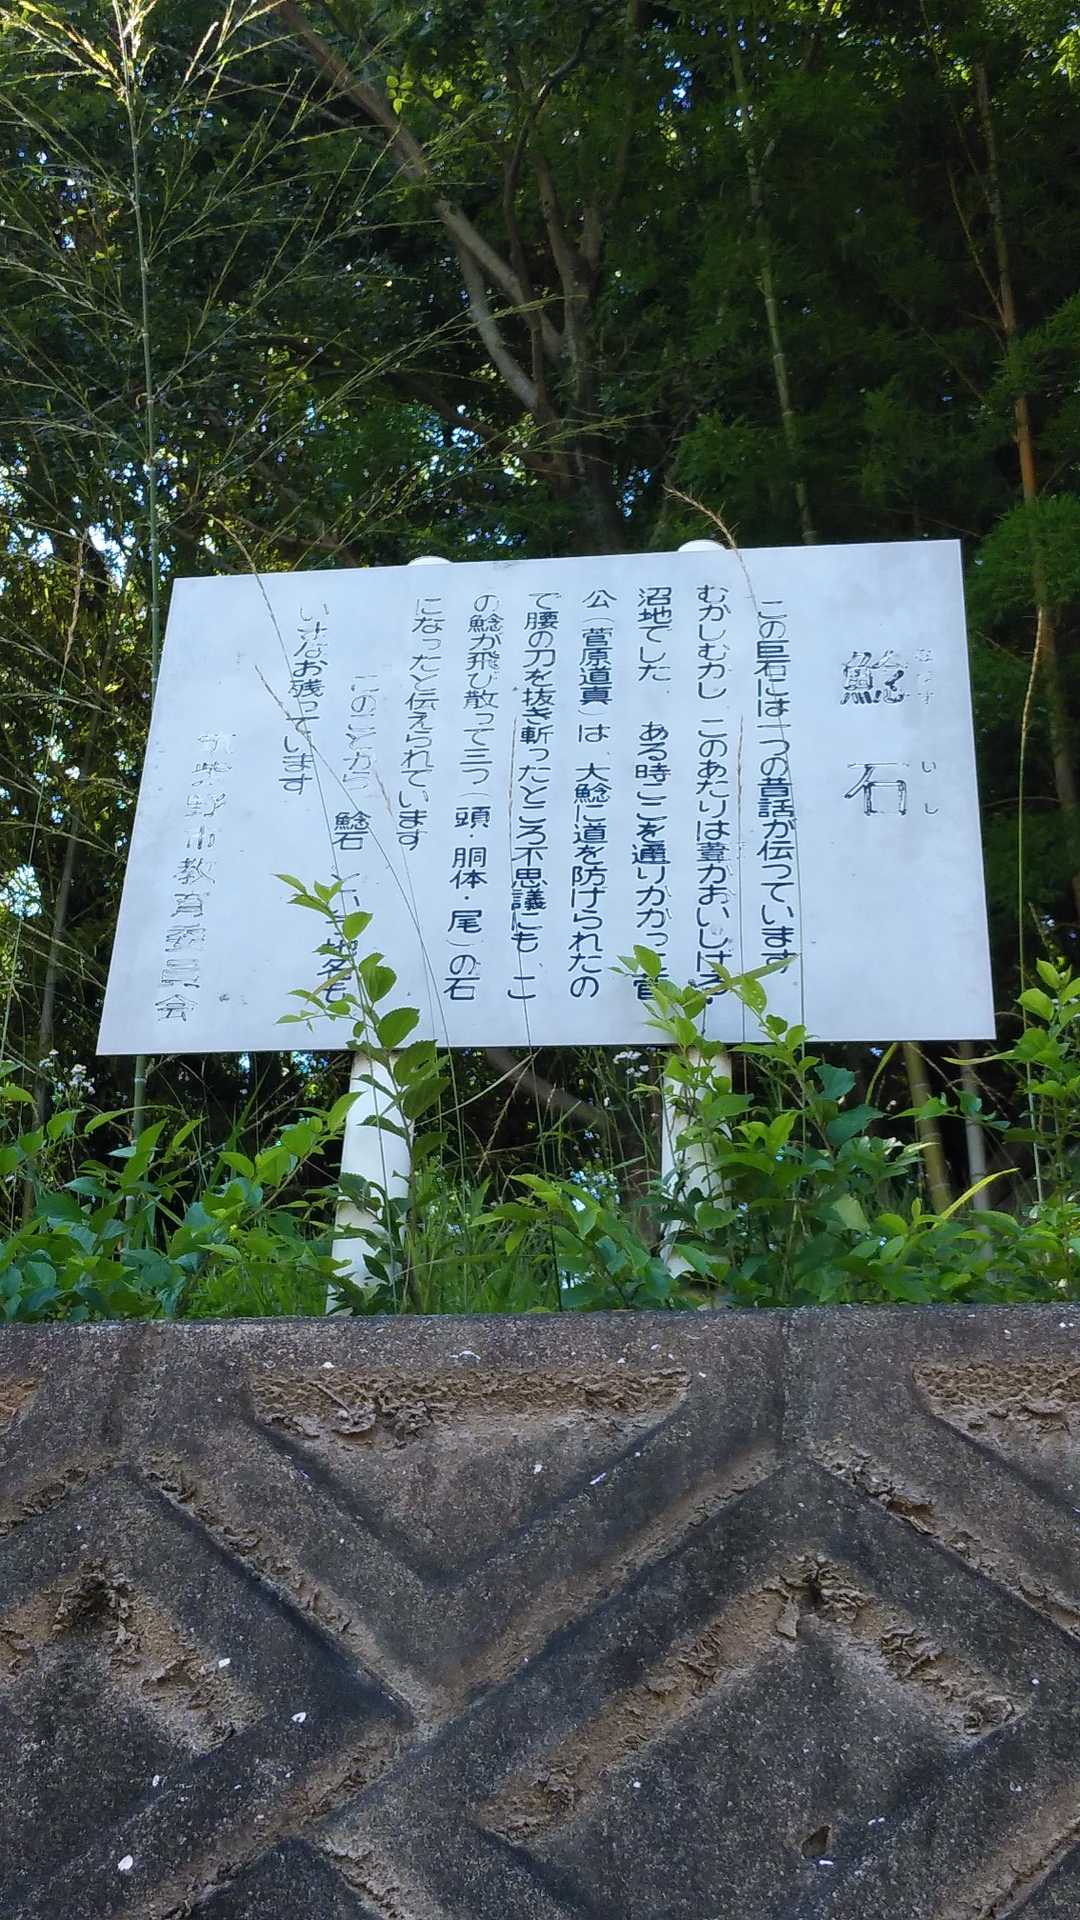 鯰石
なまず いし
この巨石には一つの昔話が伝っています
むかしむかし このあたりは葦がおいしげる
沼地でした ある時ここを通りかかった菅
公(菅原道真)は、大鯰に道を防げられたの
で腰の刀を抜き斬ったところ不思議にも、こ
の鯰が飛び散って三つ(頭・胴体・尾)の石
になったと伝えられています
このことから 鯰石 という地名も
いまなお残っています
筑紫野市教育委員会